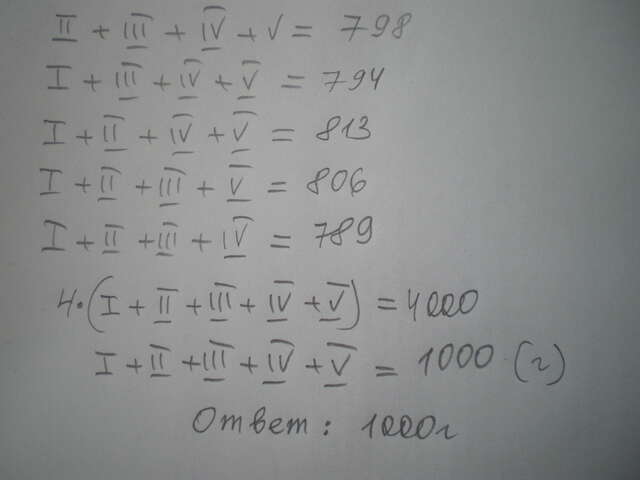 II + III + IV + V = 798
I + III + IV + V = 794
I + II + IV + V = 813
I + II + III + V = 806
I + II + III + IV = 789
4·(I + II + III + IV + V) = 4000
I + II + III + IV + V = 1000 (г)
Ответ: 1000г